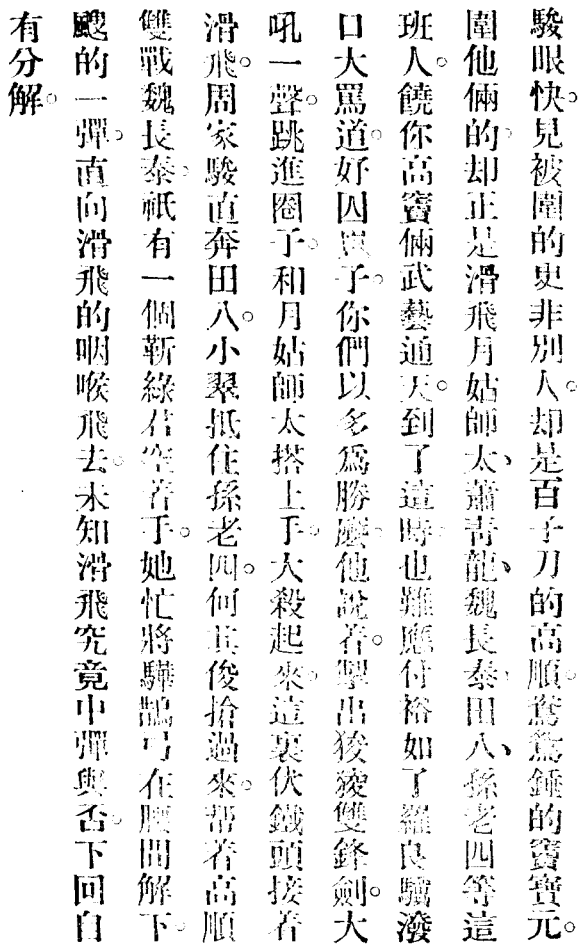 駿眼快。見被圍的更非別人。却是百子刀的高順。鴛鴦錘的竇寶元。
圍他倆的。却正是滑飛月姑師太、蕭靑龍、魏長泰、田八、孫老四等這
班人。饒你高竇倆武藝通天。到了這時。也難應付裕如了。羅良驥潑
口大罵道。好囚嚢子。你們以多爲勝麽。他說着。掣出狻猊雙鋒劍。大
吼一聲。跳進圈子。和月姑師太搭上手。大殺起來。這裏伏鐵頭接着
滑飛。周家駿直奔田八。小翠抵住孫老四。何其俊搶過來。帮着高順
雙戰魏長泰。祇有一個靳綠君空着手。她忙將驊鵲弓在腰間解下。
颼的一彈。直向滑飛的咽喉飛去。未知滑飛究竟中彈與否。下回自
有分解。